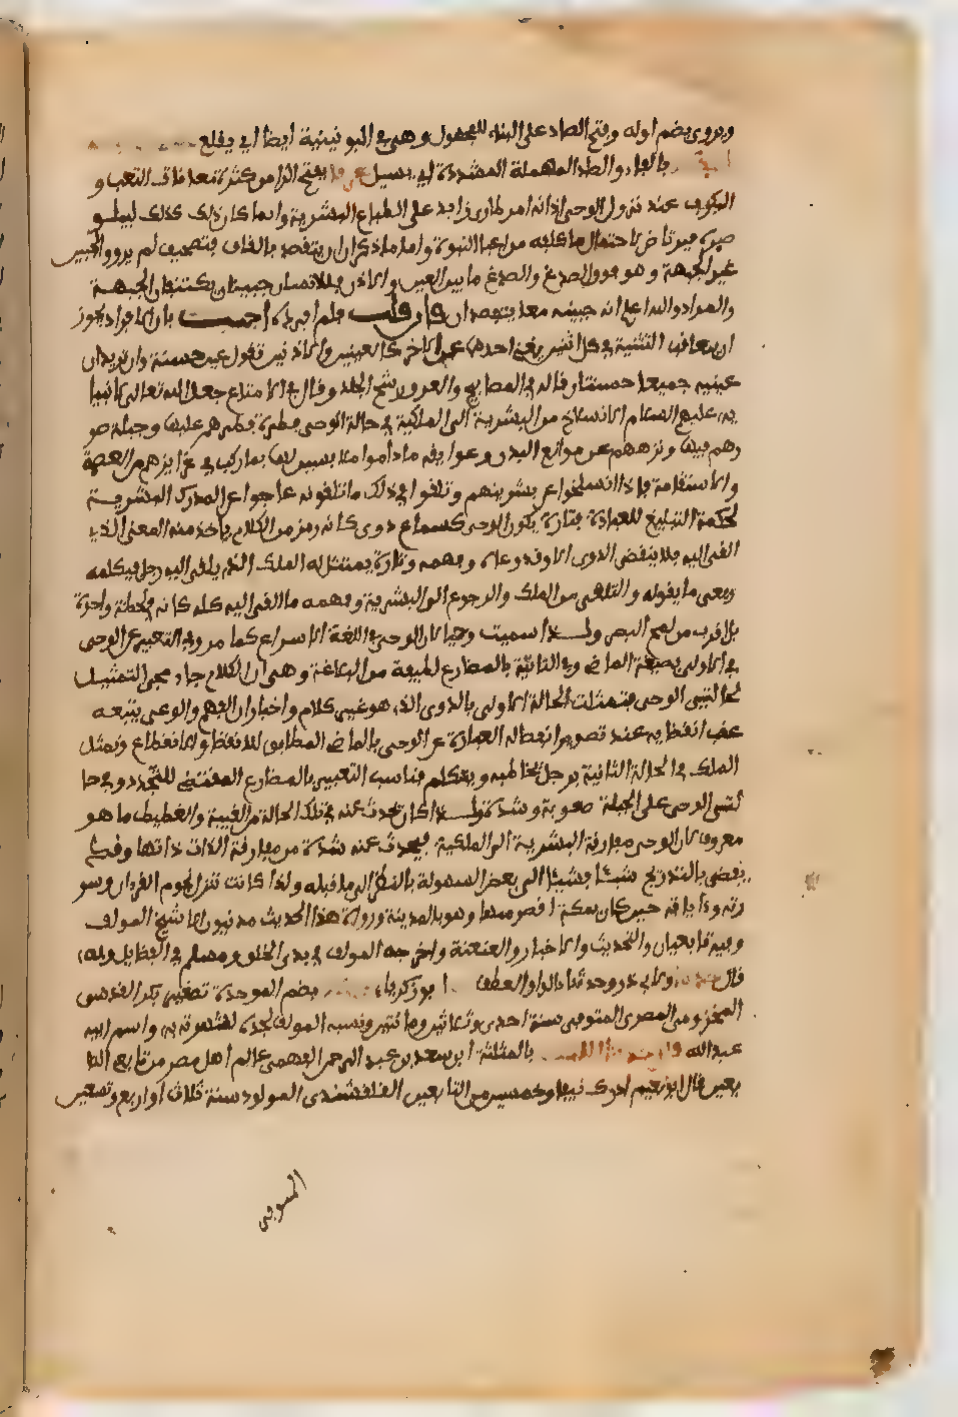 ويروى بضم اوله وفتح الصاد على البناء للمجهول وهى فى اليونينية ايضا اى يقلع
بالفاء والصاد المهملة المشددة اى يسيل عرقا بفتح الراء من كثرة معاناة التعب و
الكرب عند نزول الوحى اذ انه امر طارى زايد على الطباع البشرية وانما كان ذلك كذلك ليبلو
صبره فيرتاض لاحتمال ما كلفه من اعباء النبوة واما ما ذكر ان يتقصد بالقاف فتصحيف لم يرو والجبين
غير الجبهة وهو فوق الصدغ والصدغ ما بين العين والاذن فللانسان جبينان يكتنفان الجبهة
والمراد والله اعلم ان جبينيه معا يتفصدان فان قلت فلم افرده اجيب بان الافراد يجوز
ان يعاقب التثنية فى كل اثنين يغنى احدهما عن الاخر كالعينين والاذنين تقول عين حسنة وانت تريد ان
عينيه جميعا حسنتان قاله فى المصابيح والعرق رشح الجلد وقال فى الامتاع جعل الله تعالى لانبيا
يه عليهم السلام الانسلاخ من البشرية الى الملكية فى حالة الوحى فطرة فطرهم عليها وجبلة صو
رهم فيها ونزههم عن موانع البدن وعوايقه ما داموا ملابسين لها بما ركب فى غرايزهم من العصمة
والاستقامة فاذا انسلخوا عن بشريتهم وتلقوا فى ذلك ما تلقونه عاجوا على المدرك البشرية
لحكمة التبليغ للعباد فتارة يكون الوحى كسماع دوى كانه رمز من الكلام ياخذ منه المعنى الذى
القى اليه فلا ينقضى الدوى الا وقد وعاه وفهمه وتارة يتمثل له الملك الذى يلقى اليه رجلا فيكلمه
ويعى ما يقوله والتلقى من الملك والرجوع الى البشرية وفهمه ما القى اليه كله كانه فى لحظة واحدة
بل اقرب من لمح البصر ولهذا سميت وحيا لان الوحى فى اللغة الاسراع كما مر وفى التعبير عن الوحى
فى الاولى بصيغة الماضى وفى الثانية بالمضارع لطيفة من البلاغة وهى ان الكلام جاء مجى التمثيل
لحالتى الوحى فتمثلت الحالة الاولى بالدوى الذى هو غير كلام واخبار ان الفهم والوعى يتبعه
عقب انقضايه عند تصوير انفصاله العبارة عن الوحى بالماضى المطابق للانقضا والانقطاع وتمثل
الملك فى الحالة الثانية برجل يخاطبه ويتكلم فناسب التعبير بالمضارع المقتضى للتجدد وفى حا
لتى الوحى على الجملة صعوبة وشدة ولهذا كان يحدث عنه فى تلك الحالة من الغيبة والغطيط ما هو
معروف لان الوحى مفارقة البشرية الى الملكية فيحدث عنه شدة من مفارقة الذات ذاتها وقد
يفضى بالتدريج شيئا فشيئا الى بعض السهولة بالنظر الى ما قبله ولذا كانت تنزل نجوم القرءان وسو
رته وءاياته حين كان بمكة اقصر منها وهو بالمدينة ورواة هذا الحديث مدنيون الا شيخ المولف
وفيه تابعيان والتحديث والاخبار والعنعنة واخرجه المولف فى بدى الخلق ومسلم فى الفضايل وبه
قال ولابى ذر وحدثنا بالواو العطف ابو زكرياء بضم الموحدة تصغير بكر القرشى
المخزومى المصرى المتوفى سنة احدى وثلاثين ومائتين ونسبه المولف لجده لشهرته به واسم ابيه
عبد الله قال حدثنا الليث بالمثلثة ابن سعد بن عبد الرحمن الفهمى عالم اهل مصر من تابعى التا
بعين قال ابو نعيم ادرك نيفا وخمسين من التابعين القلقشندى المولود سنة ثلاث او اربع وتسعين
المتوفى